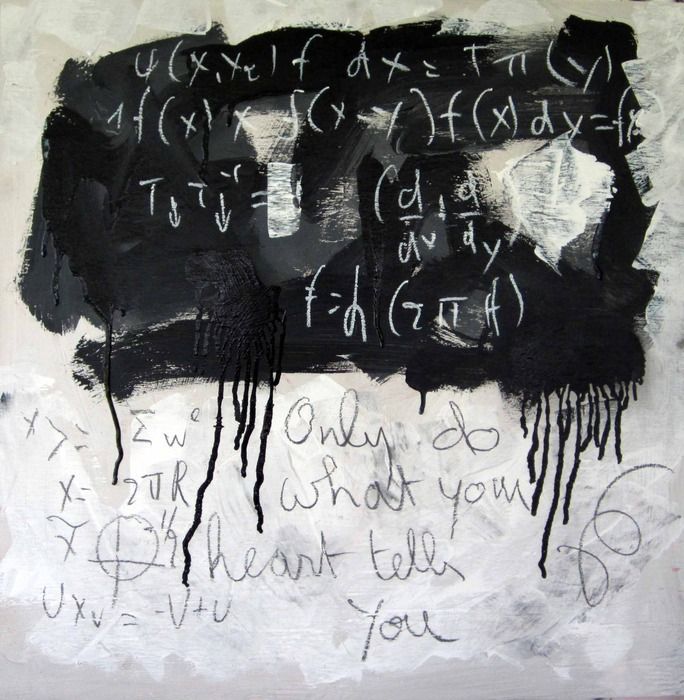 ψ(x,x₂) f dx = T π(y)
1f(x) x f(x-y) f(x) dy = f(x)
T↓ T↓⁻¹ =
(d/dv, d/dy)
f = h (2π A)
x >= Σ w²
x = 2πR
U x v = -V+U
Only do
what your
heart tells
You